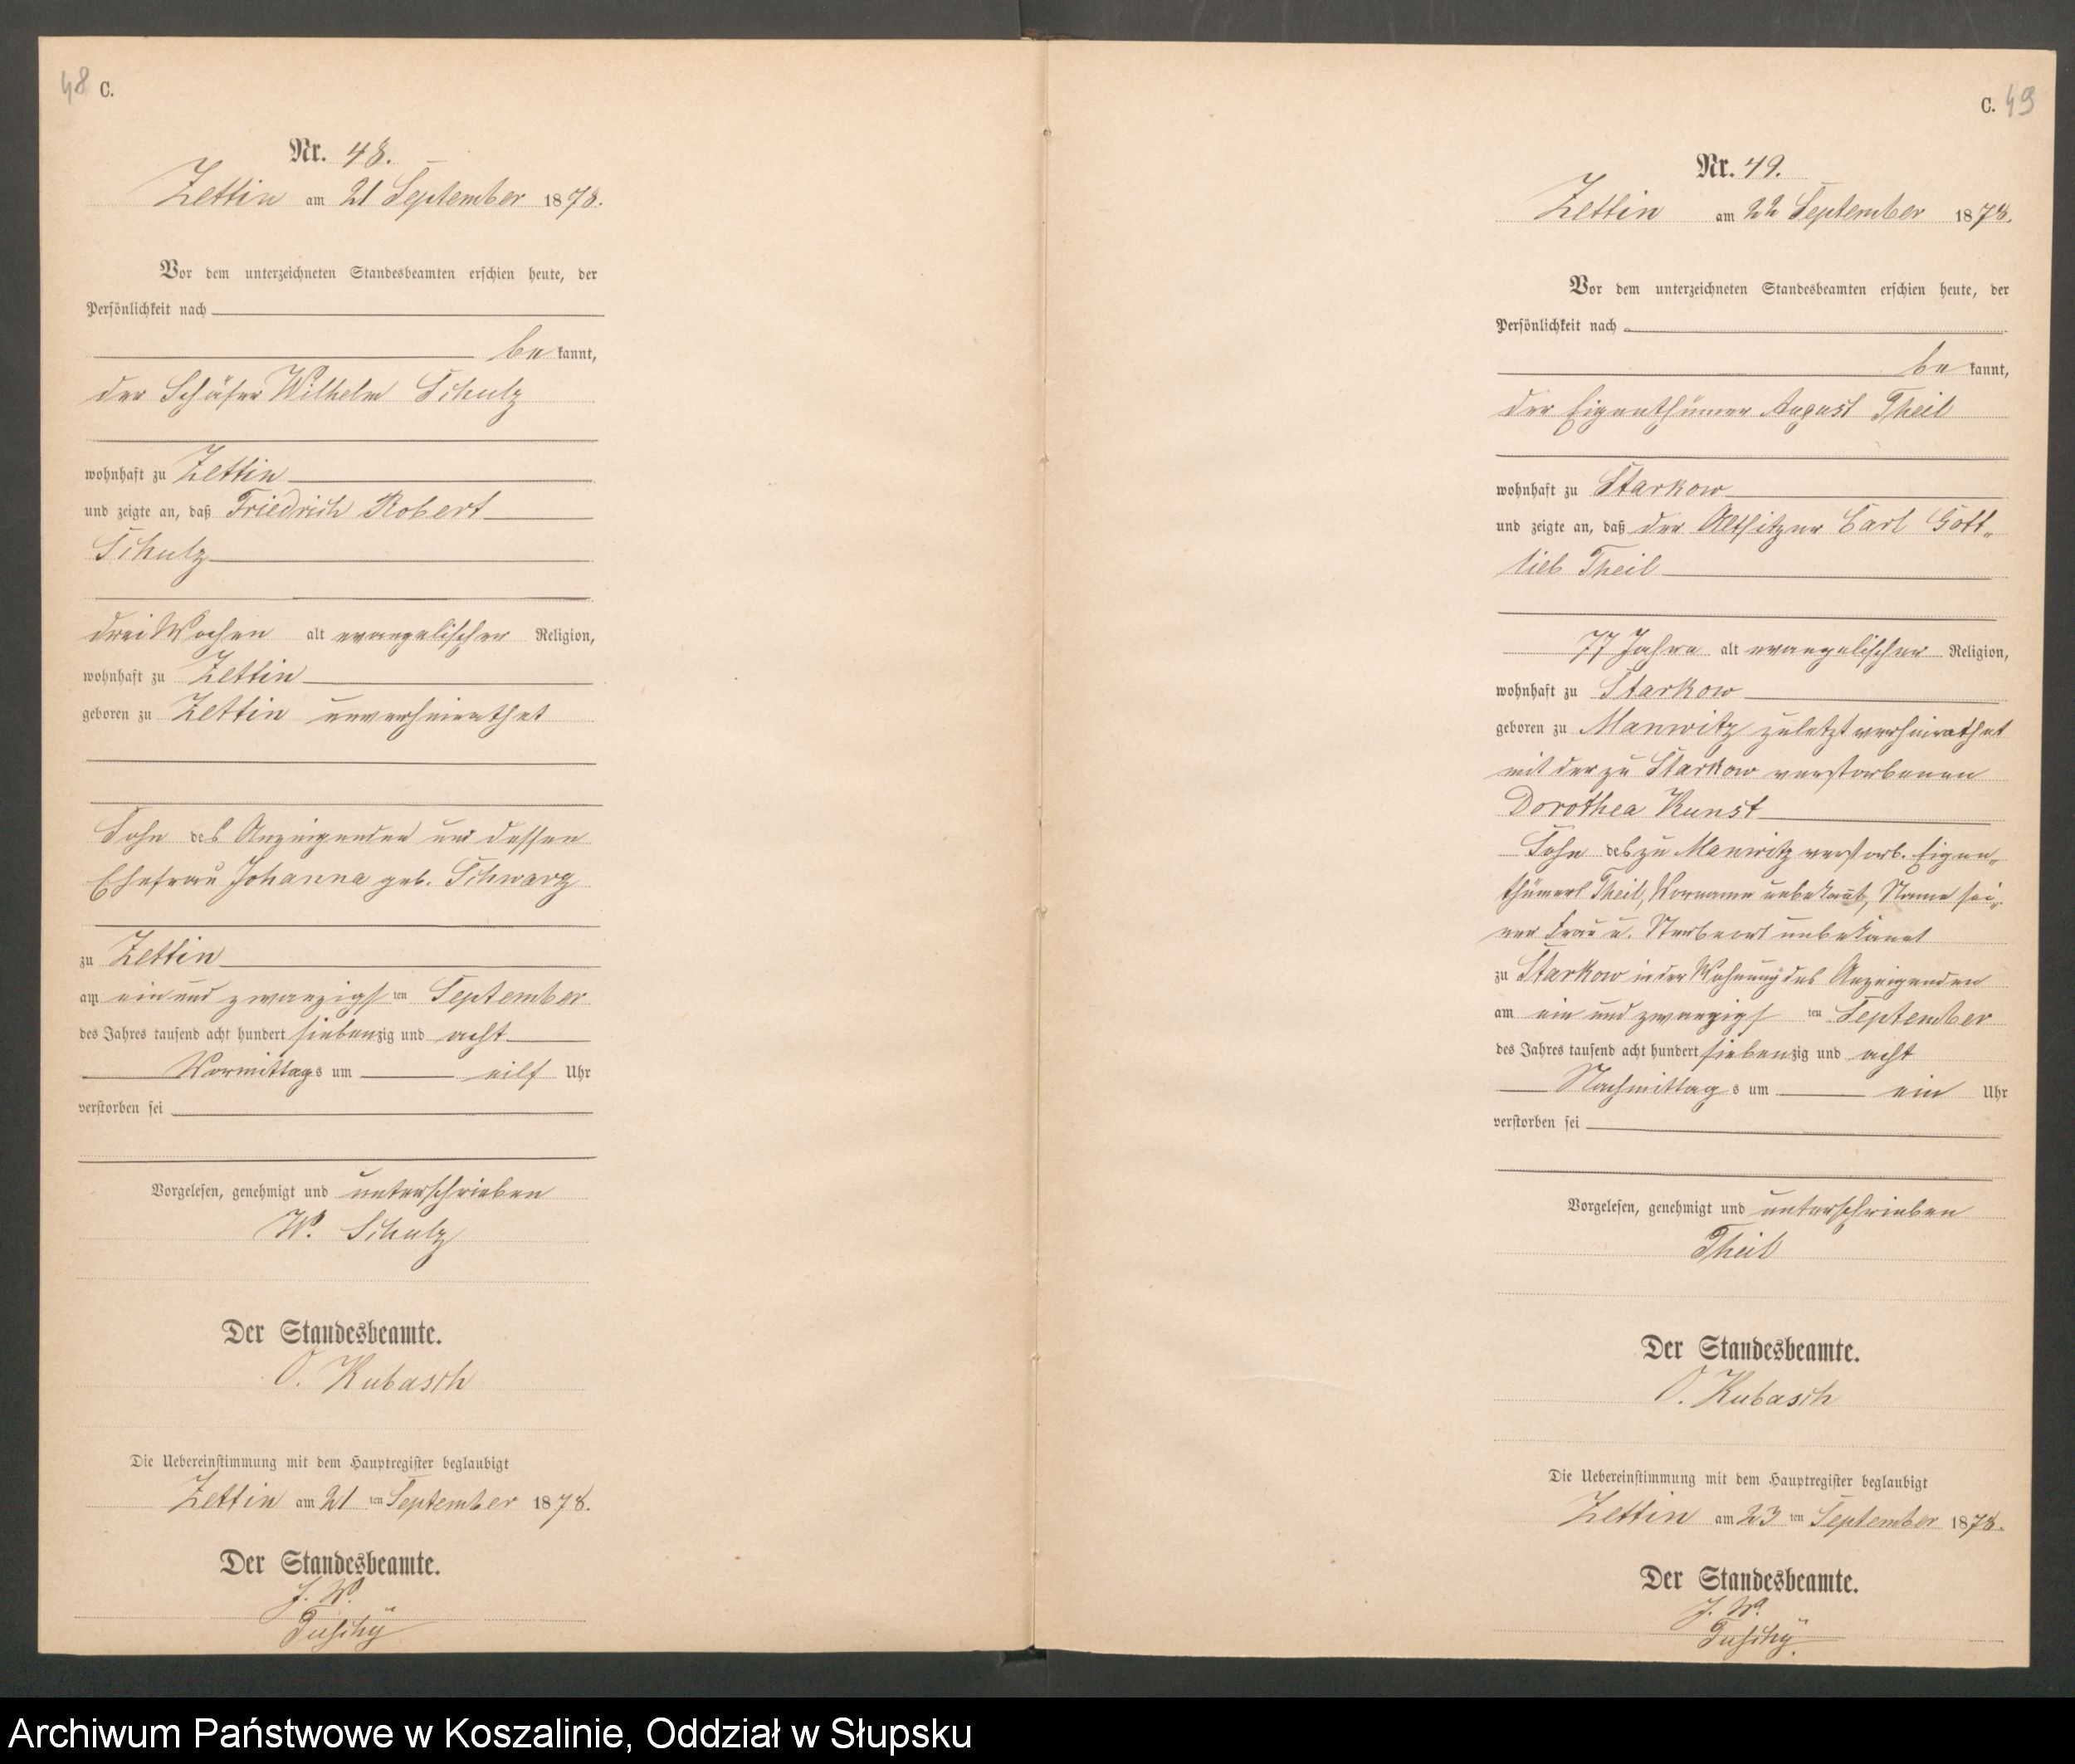 48 C.
Nr. 48.
Zettin am 21 September 1878.
Vor dem unterzeichneten Standesbeamten erschien heute, der
Persönlichkeit nach
be kannt,
der Schäfer Wilhelm Schulz
wohnhaft zu Zettin
und zeigte an, daß Friedrich Robert
Schulz
drei Wochen alt evangelischer Religion,
wohnhaft zu Zettin
geboren zu Zettin unverheirathet
Sohn des Anzeigenden und dessen
Ehefrau Johanna geb. Schwarz
zu Zettin
am ein und zwanzigsten September
des Jahres tausend acht hundert siebenzig und acht
Vormittags um eilf Uhr
verstorben sei
Vorgelesen, genehmigt und unterschrieben
W. Schulz
Der Standesbeamte.
O. Kubasch
Die Uebereinstimmung mit dem Hauptregister beglaubigt
Zettin am 21 ten September 1878.
Der Standesbeamte.
J. V.
C. 49
Nr. 49.
Zettin am 22 September 1878.
Vor dem unterzeichneten Standesbeamten erschien heute, der
Persönlichkeit nach
be kannt,
der Eigenthümer August Theil
wohnhaft zu Starkow
und zeigte an, daß der Altsitzer Carl Gott„
lieb Theil
77 Jahre alt evangelischer Religion,
wohnhaft zu Starkow
geboren zu Manwitz zuletzt verheirathet
mit der zu Starkow verstorbenen
Dorothea Kunst
Sohn des zu Manwitz verstorb. Eigen„
thümers Theil, Vorname unbekannt, Name sei„
ner Frau u. Sterbeort unbekannt
zu Starkow in der Wohnung des Anzeigenden
am ein und zwanzigsten September
des Jahres tausend acht hundert siebenzig und acht
Nachmittags um ein Uhr
verstorben sei
Vorgelesen, genehmigt und unterschrieben
Theil
Der Standesbeamte.
O. Kubasch
Die Uebereinstimmung mit dem Hauptregister beglaubigt
Zettin am 23 ten September 1878.
Der Standesbeamte.
J. V.
Archiwum Państwowe w Koszalinie, Oddział w Słupsku